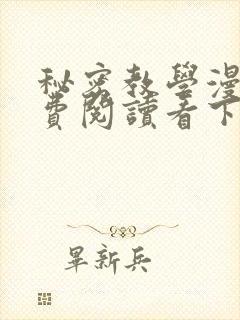 秘密教學漫
費閱讀看下
畢新兵